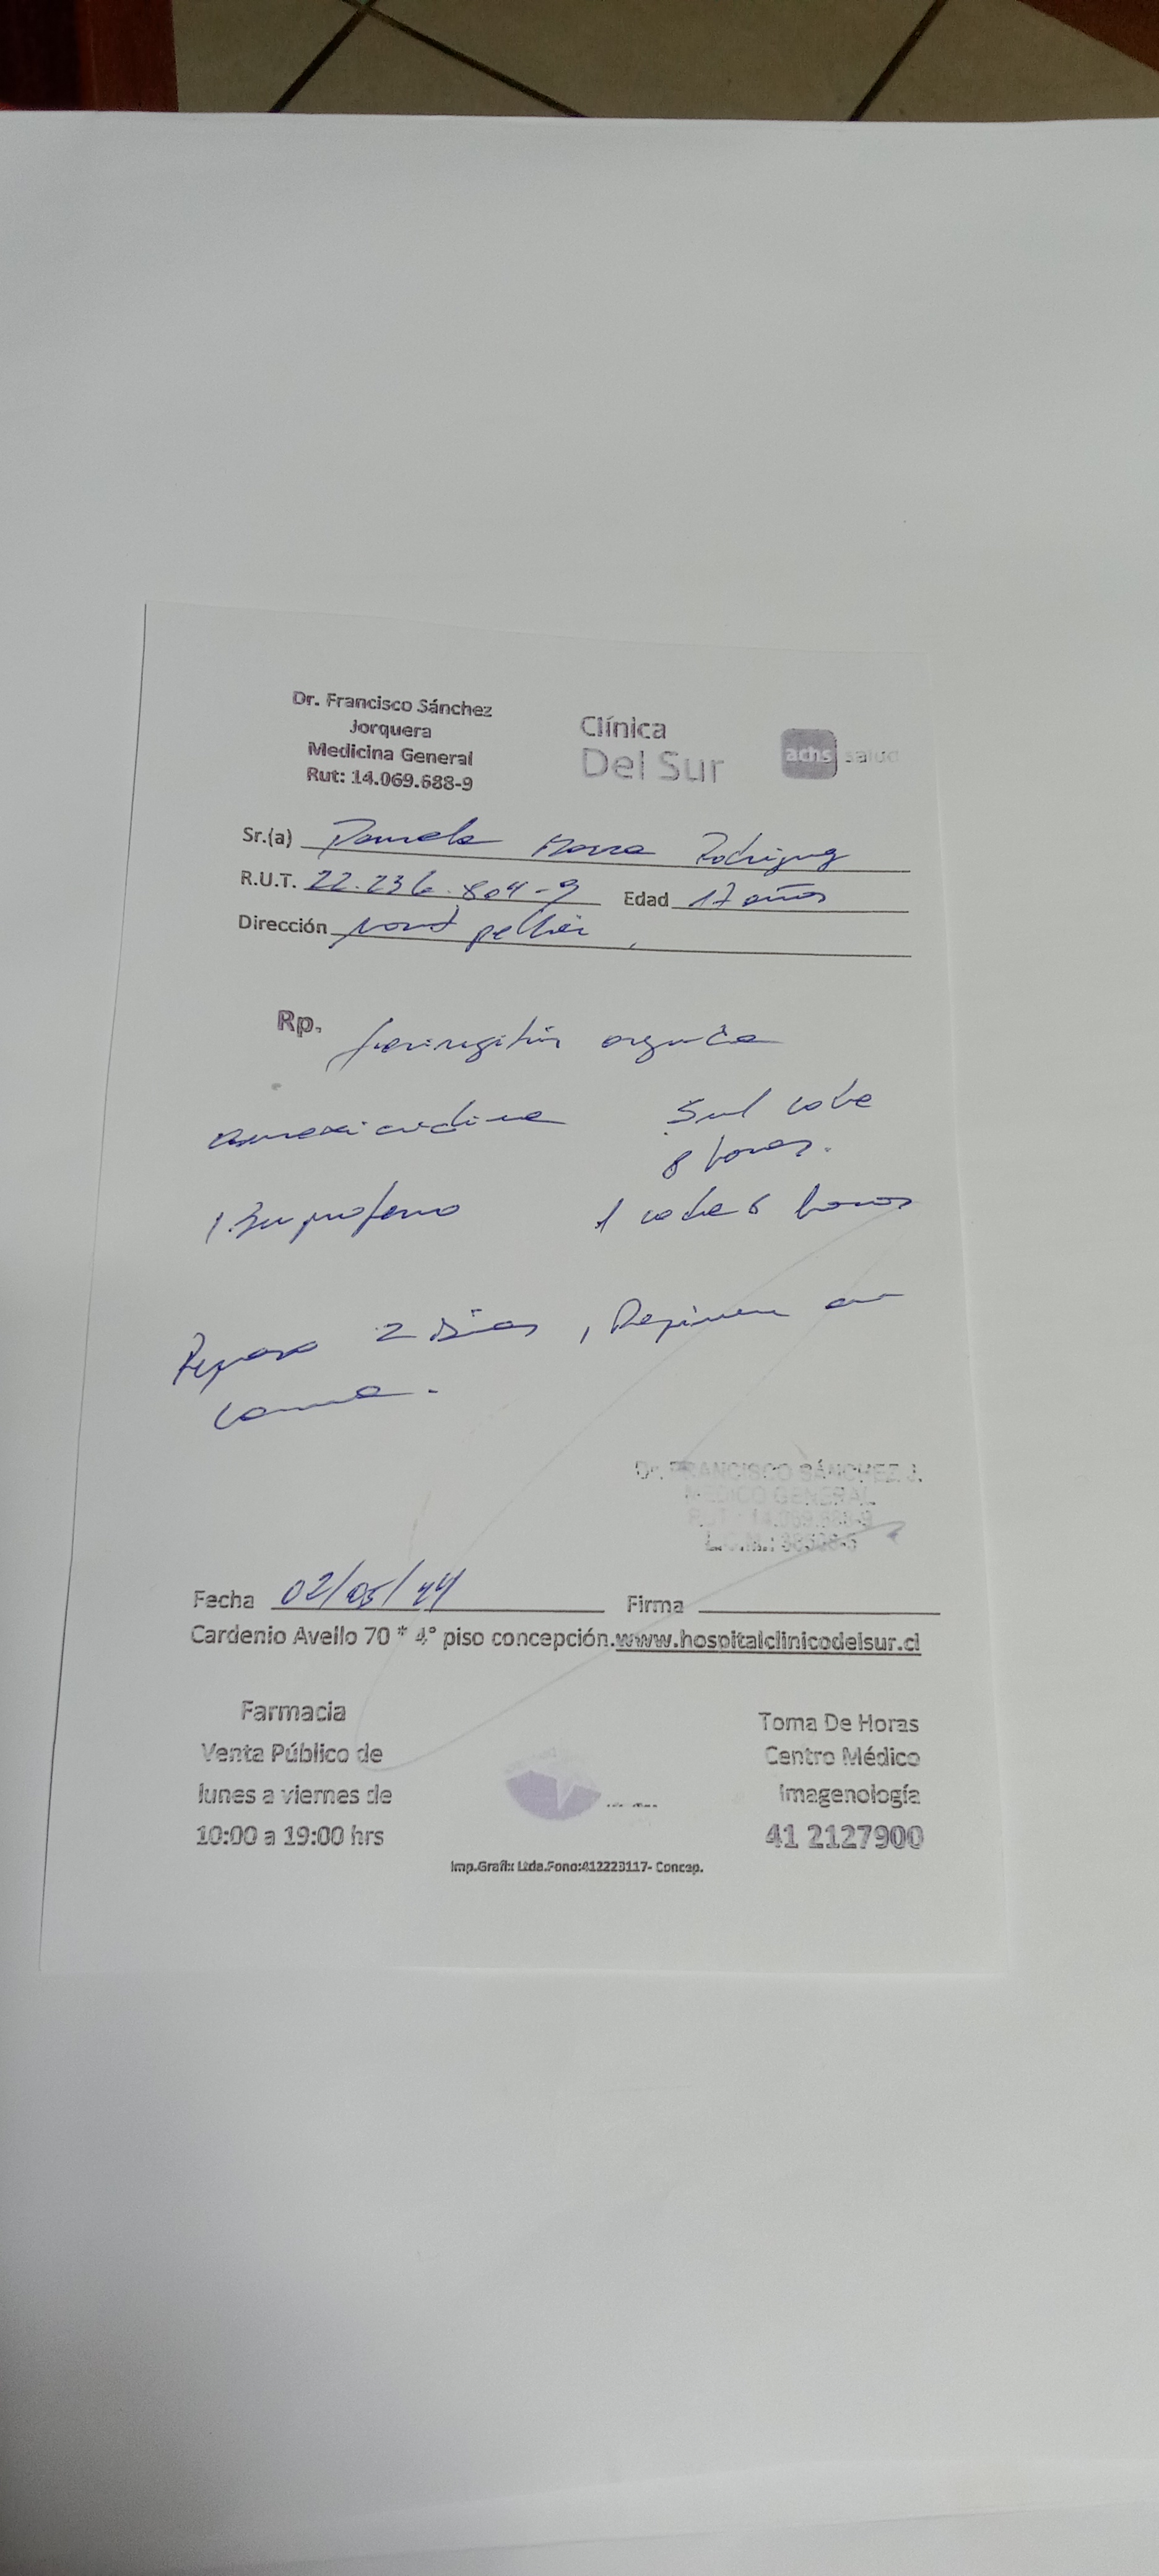 Dr. Francisco Sánchez
Jorquera
Medicina General
Rut: 14.069.688-9
Clínica
Del Sur
achs salud
Sr.(a) Rodriguez
R.U.T. 22.236.804-9 Edad 17 años
Dirección
Rp. faringitis aguda
amoxicilina 5 ml cada
8 horas.
Ibuprofeno 1 cada 6 horas
Reposo 2 Dias, Regimen en
cama.
Dr. FRANCISCO SÁNCHEZ J.
MEDICO GENERAL
RUT.: 14.069.688-9
Fecha 02/05/24 Firma
Cardenio Avello 70 * 4° piso concepción.www.hospitalclinicodelsur.cl
Farmacia
Venta Público de
lunes a viernes de
10:00 a 19:00 hrs
Toma De Horas
Centro Médico
Imagenología
41 2127900
Imp.Grafix Ltda.Fono:412223117- Concep.